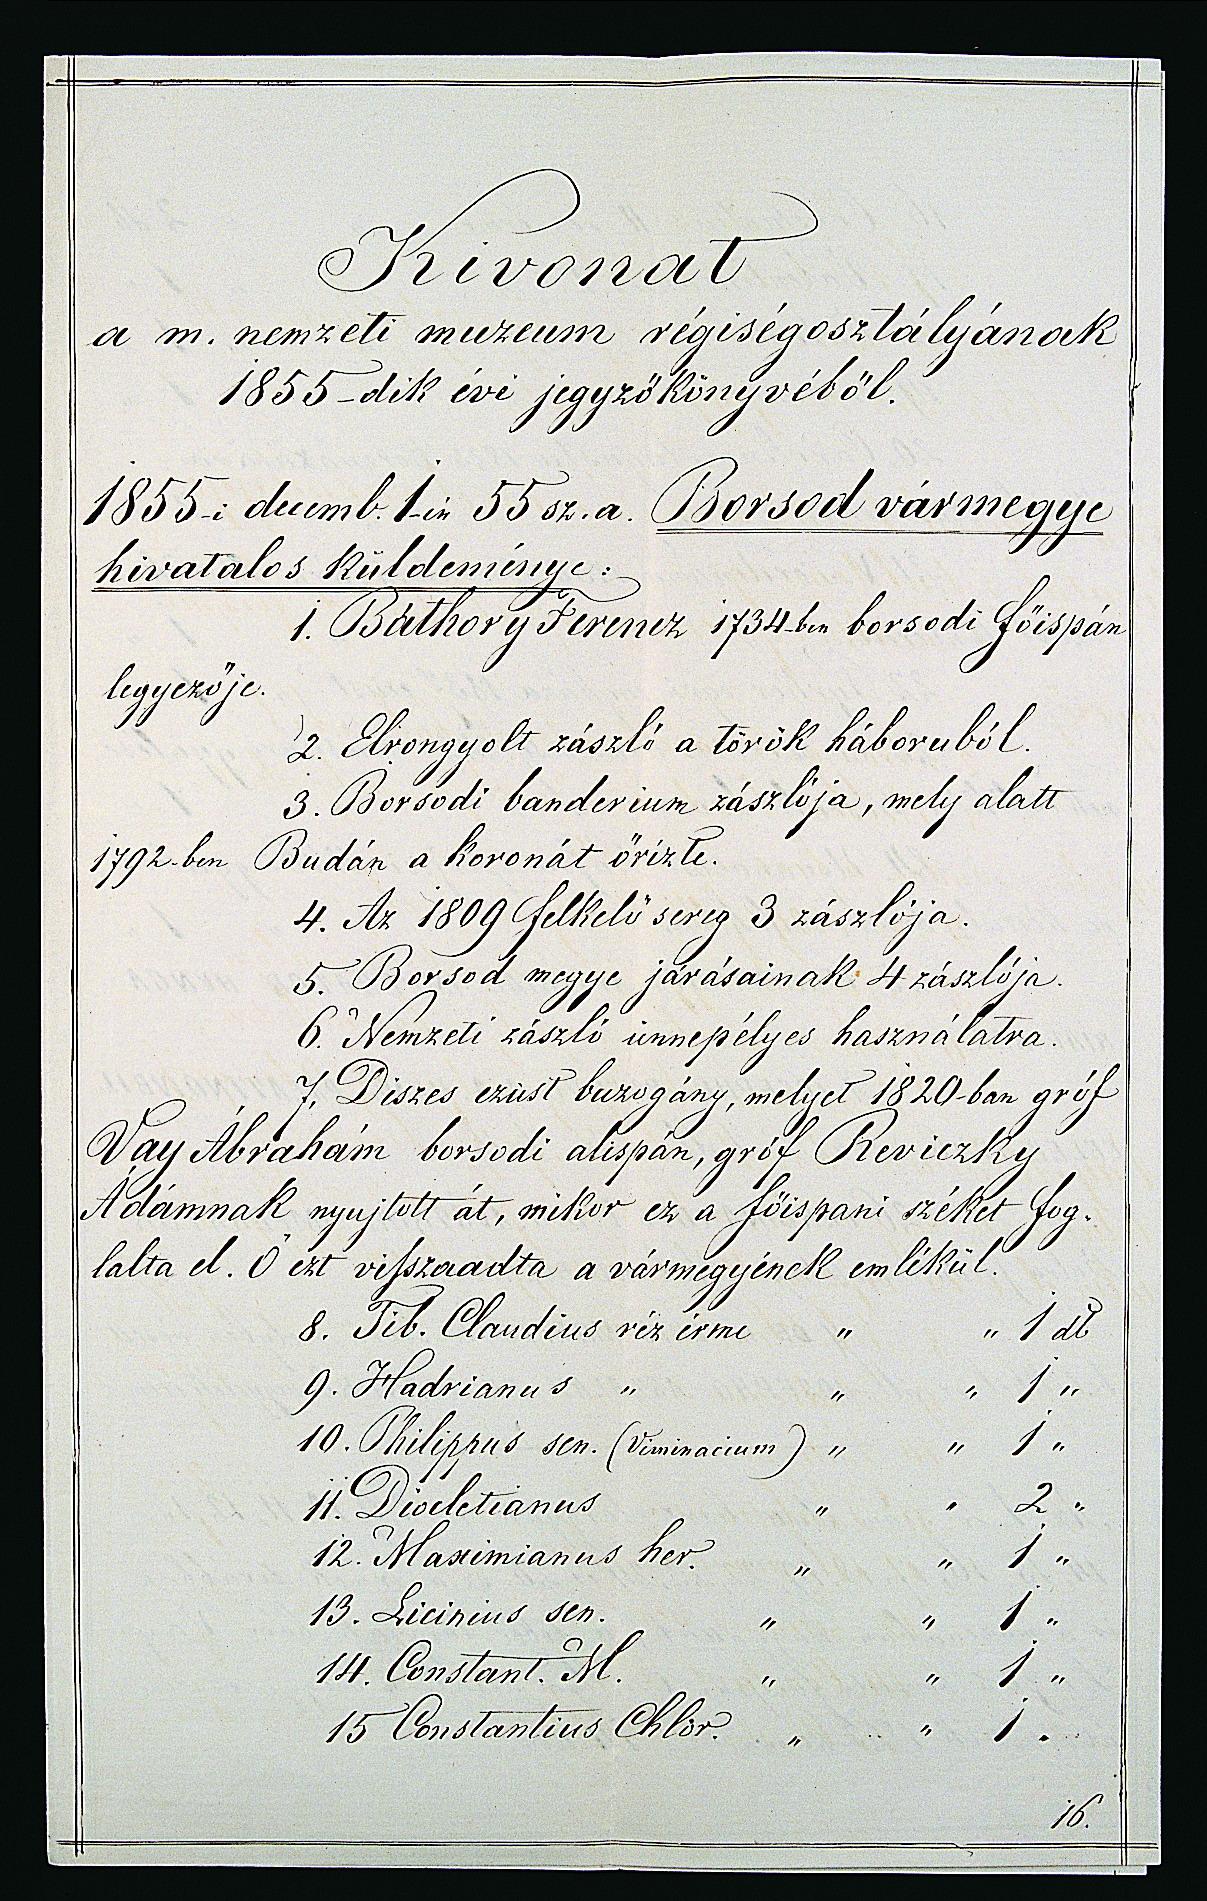 Kivonat
a m. nemzeti muzeum régiségosztályának
1855-dik évi jegyzökönyvéböl.
1855-i decemb. 1-én 55 sz. a. Borsod vármegye
hivatalos küldeménye:
1. Báthory Ferencz 1734-ben borsodi föispán
legyezöje.
2. Elrongyolt zászló a török háboruból.
3. Borsodi banderium zászlója, mely alatt
1792-ben Budán a koronát örizte.
4. Az 1809 felkelö sereg 3 zászlója.
5. Borsod megye járásainak 4 zászlója.
6. Nemzeti zászló ünnepélyes használatra.
7. Diszes ezüst buzogány, melyet 1820-ban gróf
Vay Ábrahám borsodi alispán, gróf Reviczky
Ádámnak nyujtott át, mikor ez a föispani széket fog-
lalta el. Ö ezt viſszaadta a vármegyének emlékül.
8. Tib. Claudius réz érme " " 1 db
9. Hadrianus " " " 1 "
10. Philippus sen. (Viminacium) " " 1 "
11. Diocletianus " " 2 "
12. Maximianus her. " " 1 "
13. Licinius sen. " " 1 "
14. Constant. M. " " 1 "
15 Constantius Chlor. " " 1 "
16.